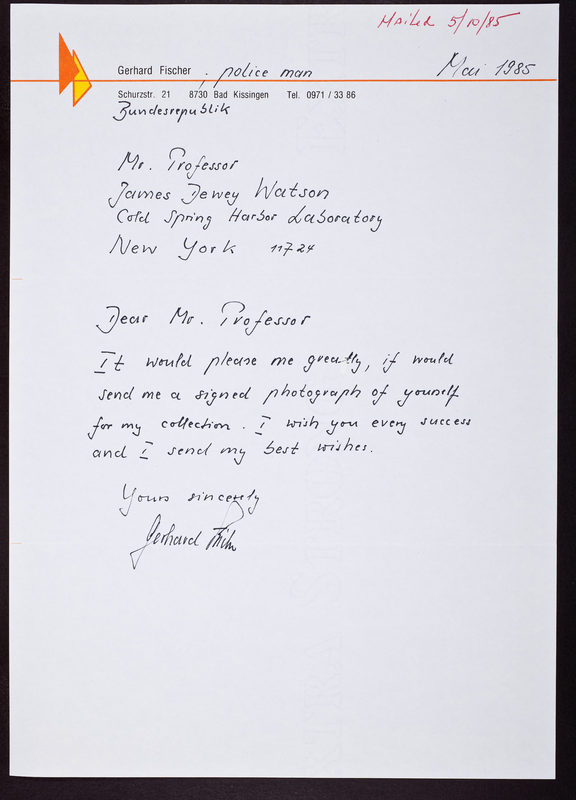 Mailed 5/10/85
Gerhard Fischer, police man
Mai 1985
Schurzstr. 21 8730 Bad Kissingen Tel. 0971 / 33 86
Bundesrepublik
Mr. Professor
James Dewey Watson
Cold Spring Harbor Laboratory
New York 11724
Dear Mr. Professor
It would please me greatly, if would
send me a signed photograph of yourself
for my collection. I wish you every success
and I send my best wishes.
Yours sincerely
Gerhard